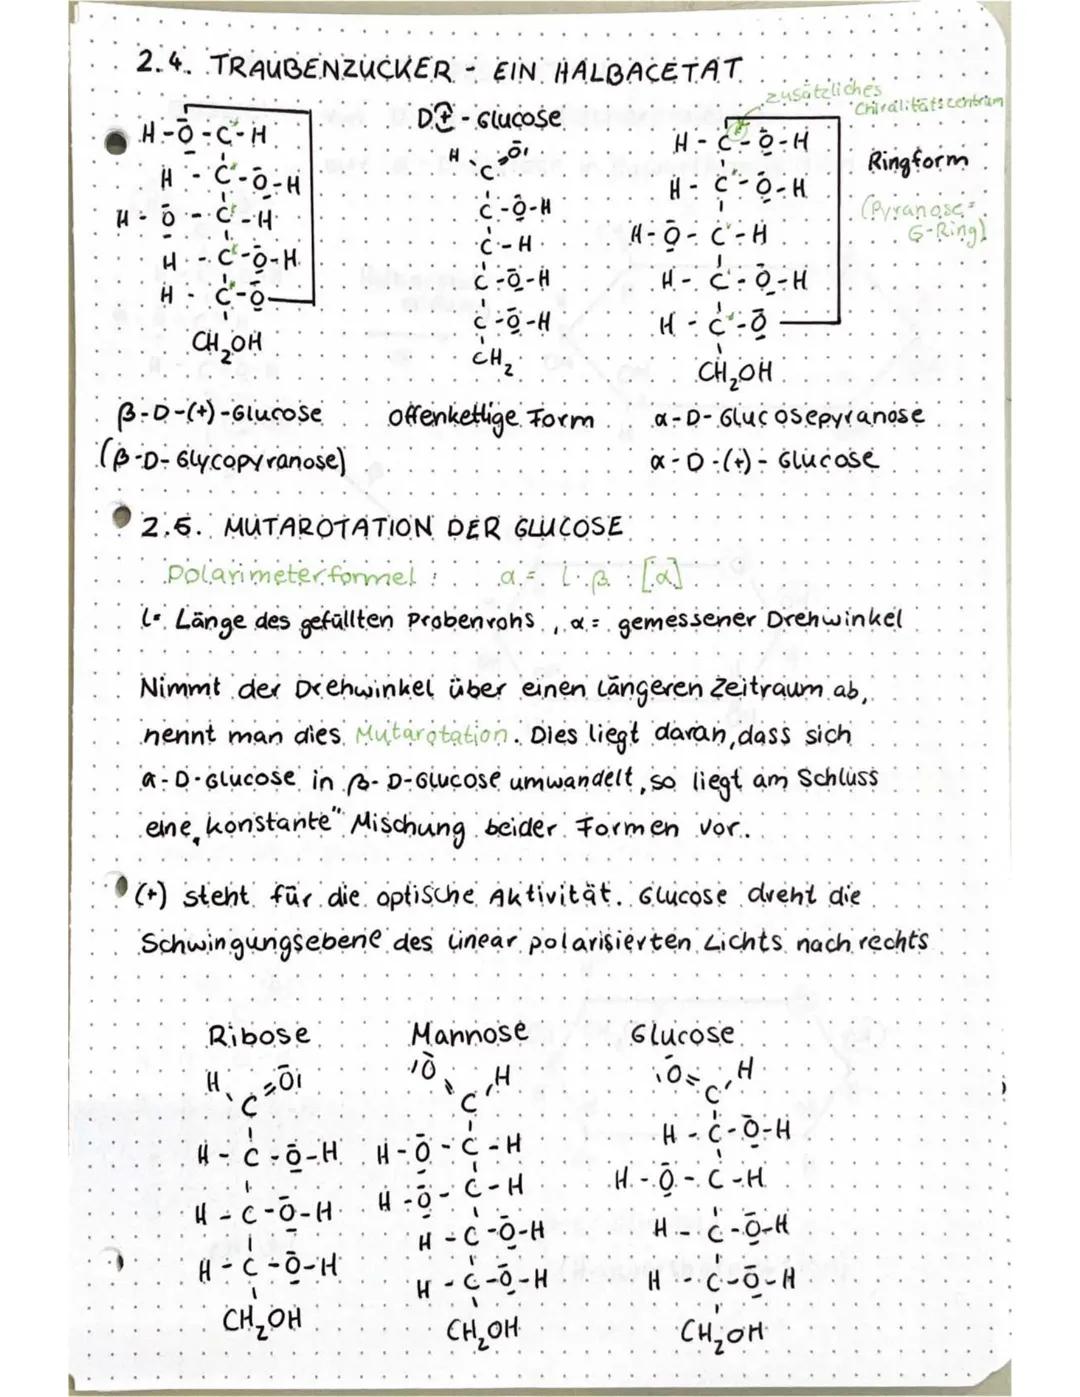 2.4. TRAUBENZUCKER - EIN HALBACETAT
zusätzliches
Chiralitätszentrum
D(+)-Glucose
H-O-C*-H
H-C*-O-H
H-O-C*-H
H-C*-O-H
H-C*-O
CH2OH
H O
C
C-O-H
C-H
C-O-H
C-O-H
CH2
H-C*-O-H
H-C*-O-H
H-O-C*-H
H-C*-O-H
H-C*-O
CH2OH
Ringform
(Pyranose =
6-Ring)
β-D-(+)-Glucose
(β-D-Glycopyranose)
offenkettige Form
α-D-Glucosepyranose
α-D-(+)-Glucose
2.5. MUTAROTATION DER GLUCOSE
Polarimeterformel: α = l · β · [α]
l = Länge des gefüllten Probenrohs, α = gemessener Drehwinkel
Nimmt der Drehwinkel über einen längeren Zeitraum ab,
nennt man dies Mutarotation. Dies liegt daran, dass sich
α-D-Glucose in β-D-Glucose umwandelt, so liegt am Schluss
eine „konstante" Mischung beider Formen vor.
(+) steht für die optische Aktivität. Glucose dreht die
Schwingungsebene des linear polarisierten Lichts nach rechts
Ribose
H O
C
H-C-O-H
H-C-O-H
H-C-O-H
CH2OH
Mannose
O H
C
H-O-C-H
H-O-C-H
H-C-O-H
H-C-O-H
CH2OH
Glucose
O H
C
H-C-O-H
H-O-C-H
H-C-O-H
H-C-O-H
CH2OH